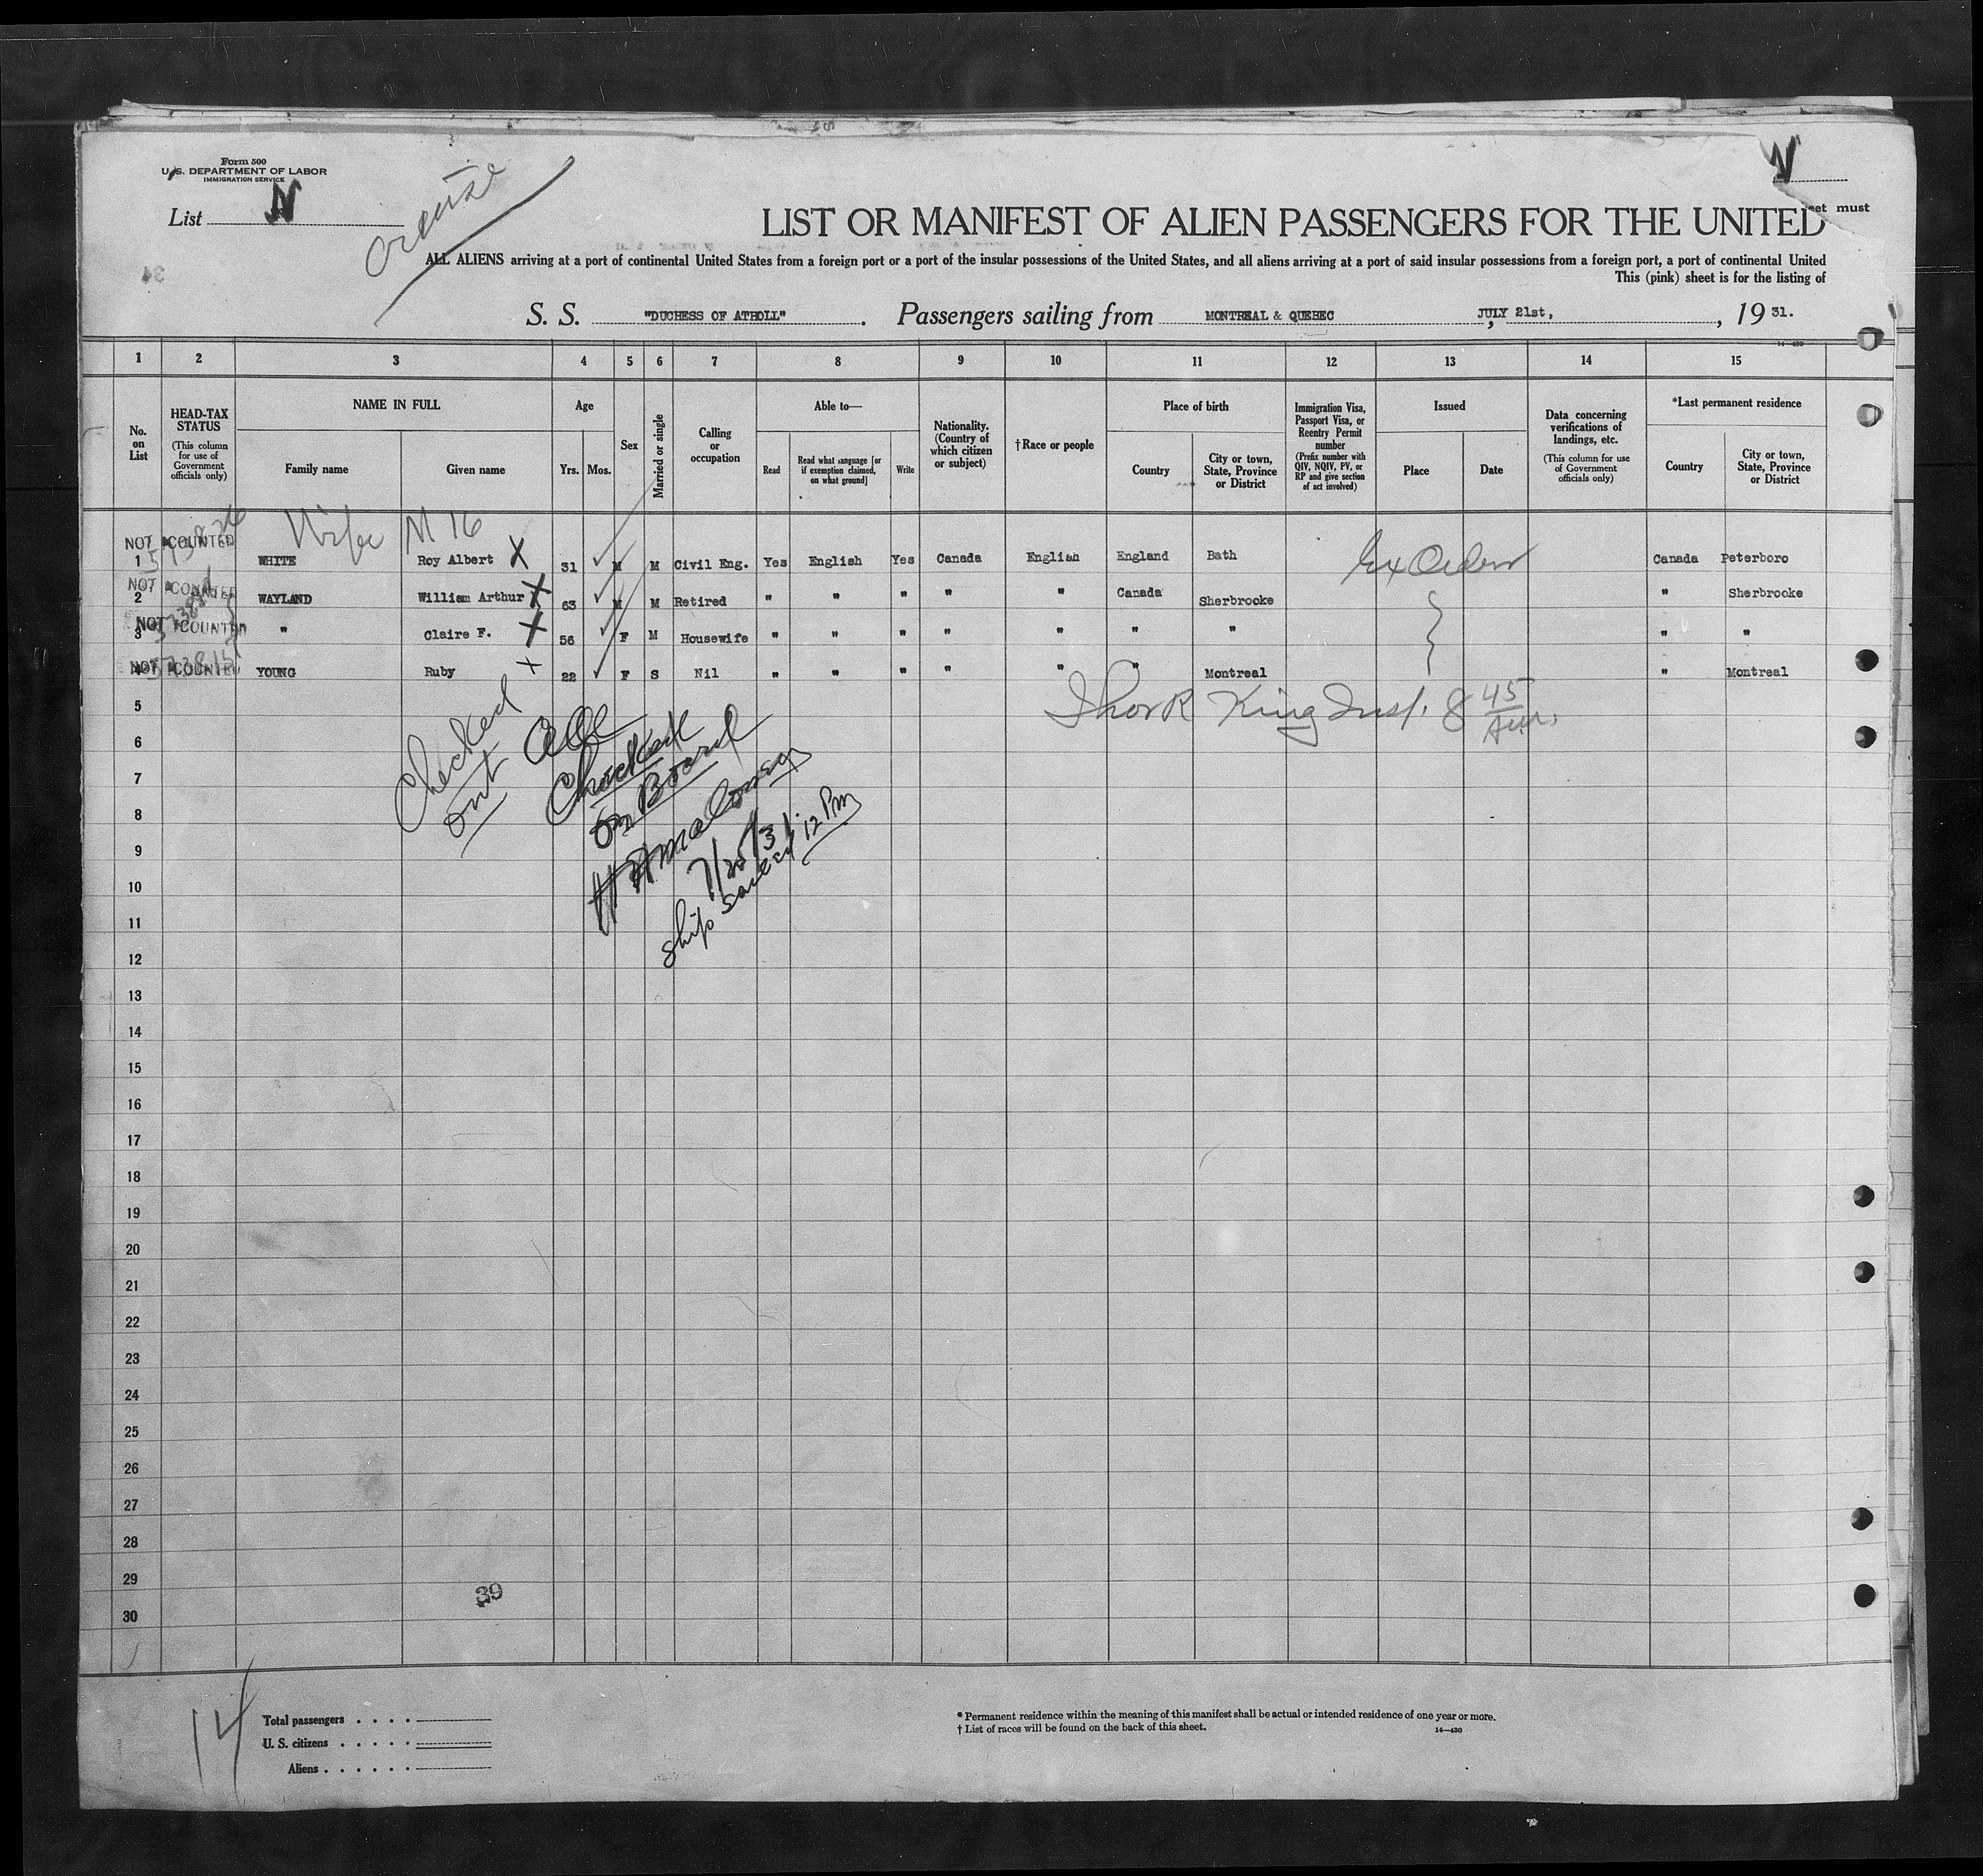 Form 500
U. S. DEPARTMENT OF LABOR
IMMIGRATION SERVICE
List N
cruise
N
eet must
LIST OR MANIFEST OF ALIEN PASSENGERS FOR THE UNITED
ALL ALIENS arriving at a port of continental United States from a foreign port or a port of the insular possessions of the United States, and all aliens arriving at a port of said insular possessions from a foreign port, a port of continental United
This (pink) sheet is for the listing of
34
S. S. "DUCHESS OF ATHOLL". Passengers sailing from MONTREAL & QUEBEC, JULY 21st, , 19 31.
14—430
1 2 3 4 5 6 7 8 9 10 11 12 13 14 15
No. on List
HEAD-TAX STATUS (This column for use of Government officials only)
NAME IN FULL
Family name Given name
Age
Yrs. Mos.
Sex
Married or single
Calling or occupation
Able to—
Read Read what language [or if exemption claimed, on what ground] Write
Nationality. (Country of which citizen or subject)
†Race or people
Place of birth
Country City or town, State, Province or District
Immigration Visa, Passport Visa, or Reentry Permit number (Prefix number with QIV, NQIV, PV, or RP and give section of act involved)
Issued
Place Date
Data concerning verifications of landings, etc. (This column for use of Government officials only)
*Last permanent residence
Country City or town, State, Province or District
Wife M 16
NOT COUNTED
1 WHITE Roy Albert X 31 M M Civil Eng. Yes English Yes Canada English England Bath Canada Peterboro
NOT COUNTED
2 WAYLAND William Arthur X 63 M M Retired " " " " " Canada Sherbrooke " Sherbrooke
NOT COUNTED
3 " Claire F. X 56 F M Housewife " " " " " " " " "
NOT COUNTED
YOUNG Ruby X 22 F S Nil " " " " " " Montreal " Montreal
5 Thor R King Insp. 8 45 Am.
6
7
8
9
10
11
12
13
14
15
16
17
18
19
20
21
22
23
24
25
26
27
28
29
30
Checked
out
All
Checked
on Board
Maloney
7/25/31
ship sailed 12 Pm
39
14
Total passengers . . . .
U. S. citizens . . . . .
Aliens . . . . . .
* Permanent residence within the meaning of this manifest shall be actual or intended residence of one year or more.
† List of races will be found on the back of this sheet. 14—430